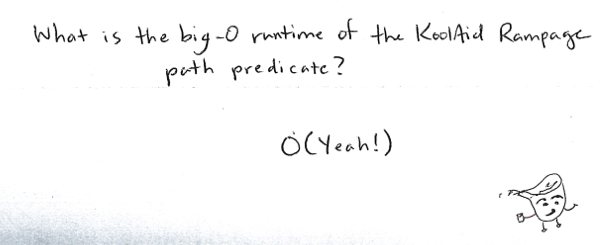 What is the big-O runtime of the KoolAid Rampage
path predicate?
O(Yeah!)